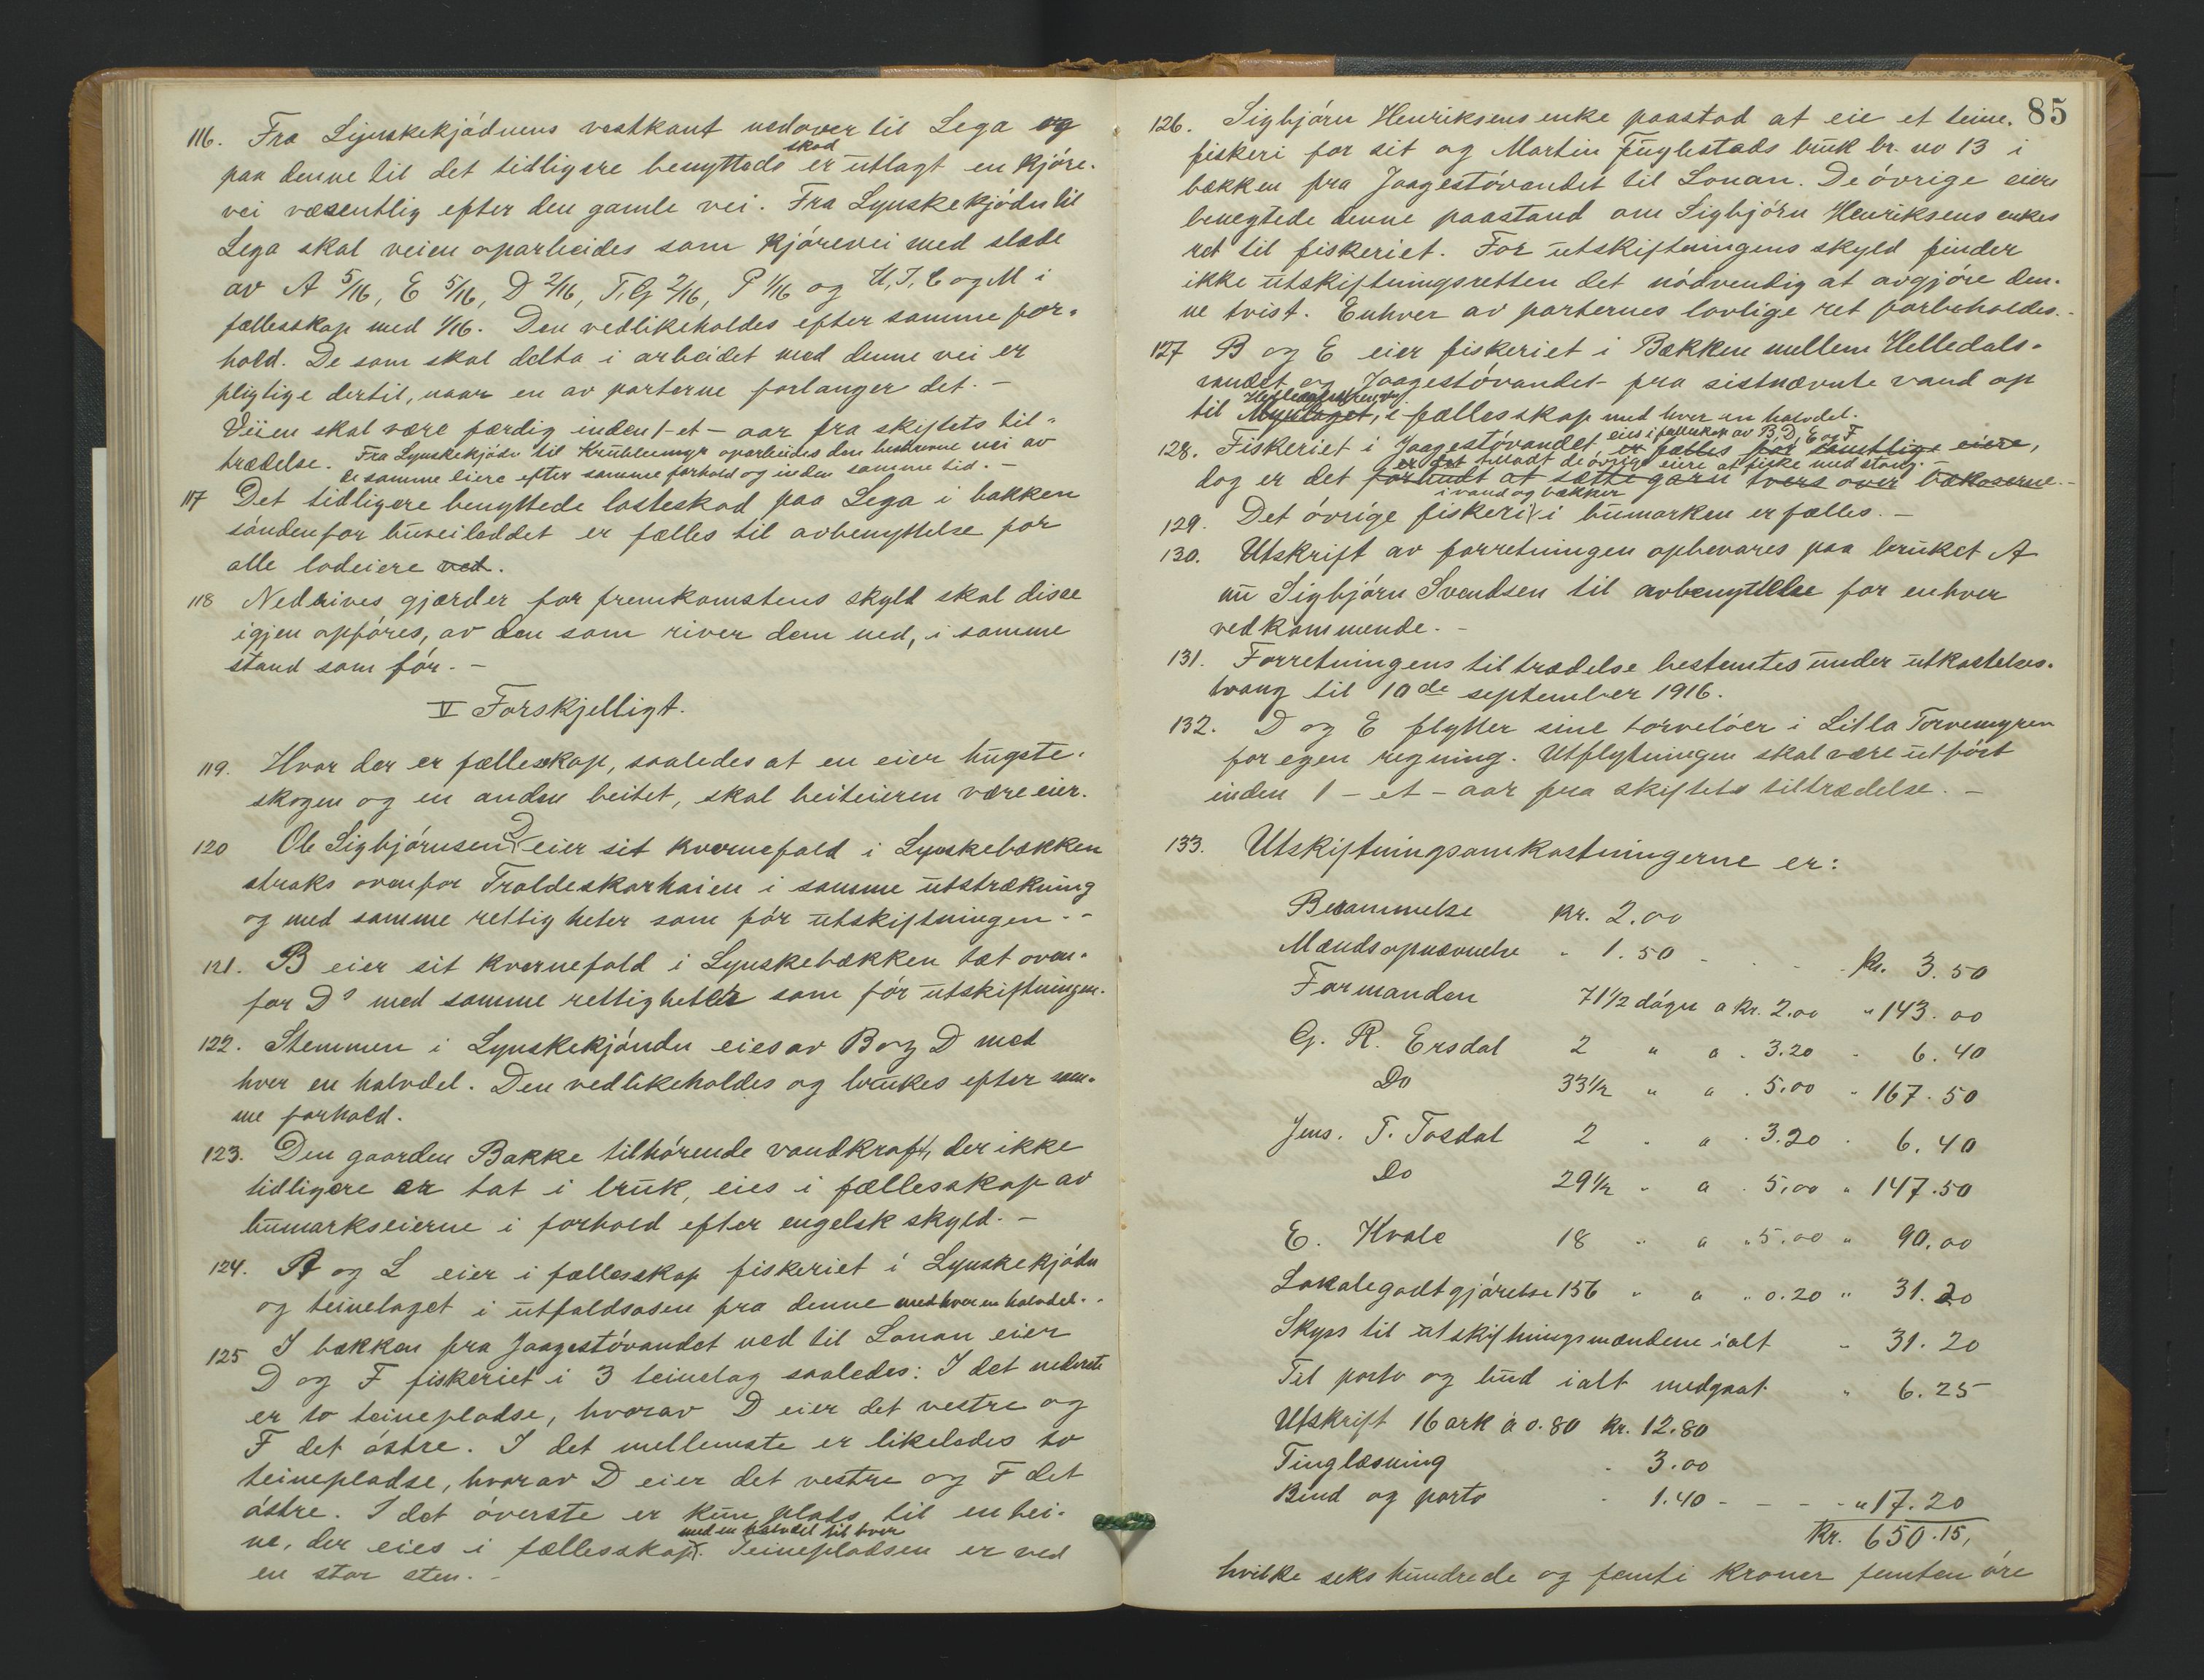 116. Fra Lynskekjødnens vestkant nedover til Lega og
paa denne til det tidligere benyttede skod er utlagt en kjøre-
vei væsentlig efter den gamle vei. Fra Lynskekjødn til
Lega skal veien oparbeides som kjørevei med slæde
av A 5/16, E 5/16, D 2/16, T, G 2/16, P 1/16 og H, I, C og M i
fællesskap med 1/16. Den vedlikeholdes efter samme for-
hold. De som skal delta i arbeidet med denne vei er
pligtige dertil, naar en av parterne forlanger det. –
Veien skal være færdig inden 1 - et - aar fra skiftets til-
trædelse. Fra Lynskekjødn til oparbeides den beskrevne vei av
de samme eiere efter samme forhold og inden samme tid. –
117 Det tidligere benyttede lasteskod paa Lega i bakken
søndenfor buveileddet er fælles til avbenyttelse for
alle lodeiere ved.
118 Nedrives gjærder for fremkomstens skyld skal disse
igjen opføres, av den som river dem ned, i samme
stand som før. –
V Forskjelligt.
119. Hvor der er fællesskap, saaledes at en eier hugste-
skogen og en anden beitet, skal beiteieren være eier.
120 Ole Sigbjørnsen D eier sit kvernefald i Lynskebækken
straks ovenfor Troldeskarhaien i samme utstrækning
og med samme rettigheter som før utskiftningen. –
121. B eier sit kvernefald i Lynskebækken tæt oven-
for Ds med samme rettigheter som før utskiftningen.
122. Stemmen i Lynskekjøndn eies av B og D med
hver en halvdel. Den vedlikeholdes og brukes efter sam-
me forhold.
123. Den gaarden Bakke tilhørende vandkraft, der ikke
tidligere er tat i bruk, eies i fællesskap av
bumarkseierne i forhold efter engelsk skyld. –
124. A og L eier i fællesskap fiskeriet i Lynskekjødn
og teinelaget i utfaldsosen fra denne med hver en halvdel. –
125 I bækken fra Jaagestøvandet ned til Lonan eier
D og F fiskeriet i 3 teinelag saaledes: I det nederste
er to teinepladse, hvorav D eier det vestre og
F det østre. I det mellemste er likeledes to
teinepladse, hvorav D eier det vestre og F det
østre. I det øverste er kun plads til en tei-
ne, der eies i fællesskap med en halvdel til hver. Teinepladsen er ved
en stor sten. –
85
126. Sigbjørn Henriksens enke paastod at eie et teine-
fiskeri for sit og Martin Fuglestads bruk br. no 13 i
bækken fra Jaagestøvandet til Lonan. De øvrige eiere
benegtede denne paastand om Sigbjørn Henriksens enkes
ret til fiskeriet. For utskiftningens skyld finder
ikke utskiftningsretten det nødvendig at avgjøre den-
ne tvist. Enhver av parternes lovlige ret forbeholdes. –
127 B og E eier fiskeriet i Bækken mellem Helledals-
vandet og Jaagestøvandet fra sistnævnte vand op
til i fællesskap med hver en halvdel.
128. Fiskeriet i Jaagestøvandet eies i fælleskap av B, D, E og F er fælles for samtlige eiere,
dog er det er det tilladt de øvrige eiere at fiske med stang. forbudt at sætte garn tvers over bækoserne. –
129. Det øvrige fiskeri i vand og bækker i bumarken er fælles. –
130. Utskrift av forretningen opbevares paa bruket A
nu Sigbjørn Svendsen til avbenyttelse for enhver
vedkommende. –
131. Forretningens tiltrædelse bestemtes under utkastelses-
tvang til 10de september 1916.
132. D og E flytter sine torveløer i Litla Torvemyren
for egen regning. Utflytningen skal være utført
inden 1 - et - aar fra skiftets tiltrædelse. –
133. Utskiftningsomkostningerne er:
Berammelse kr. 2.00
Mændsopnævnelse " 1.50 - - - kr. 3.50
Formanden 71 1/2 døgn a kr. 2.00 " 143.00
G. R. Ersdal 2 " a " 3.20 " 6.40
Do 33 1/2 " a " 5.00 " 167.50
Jens. T. Tosdal 2 " a " 3.20 " 6.40
Do 29 1/2 " a " 5.00 " 147.50
E. Kvale 18 " a " 5.00 " 90.00
Lokalegodtgjørelse 156 " a " 0.20 " 31.20
Skyss til utskiftningsmændene ialt " 31.20
Til porto og bud ialt medgaat " 6.25
Utskrift 16 ark à 0.80 kr. 12.80
Tinglæsning " 3.00
Bind og porto " 1.40 - - - " 17.20
Kr. 650.15,
hvilke seks hundrede og femti kroner femten øre